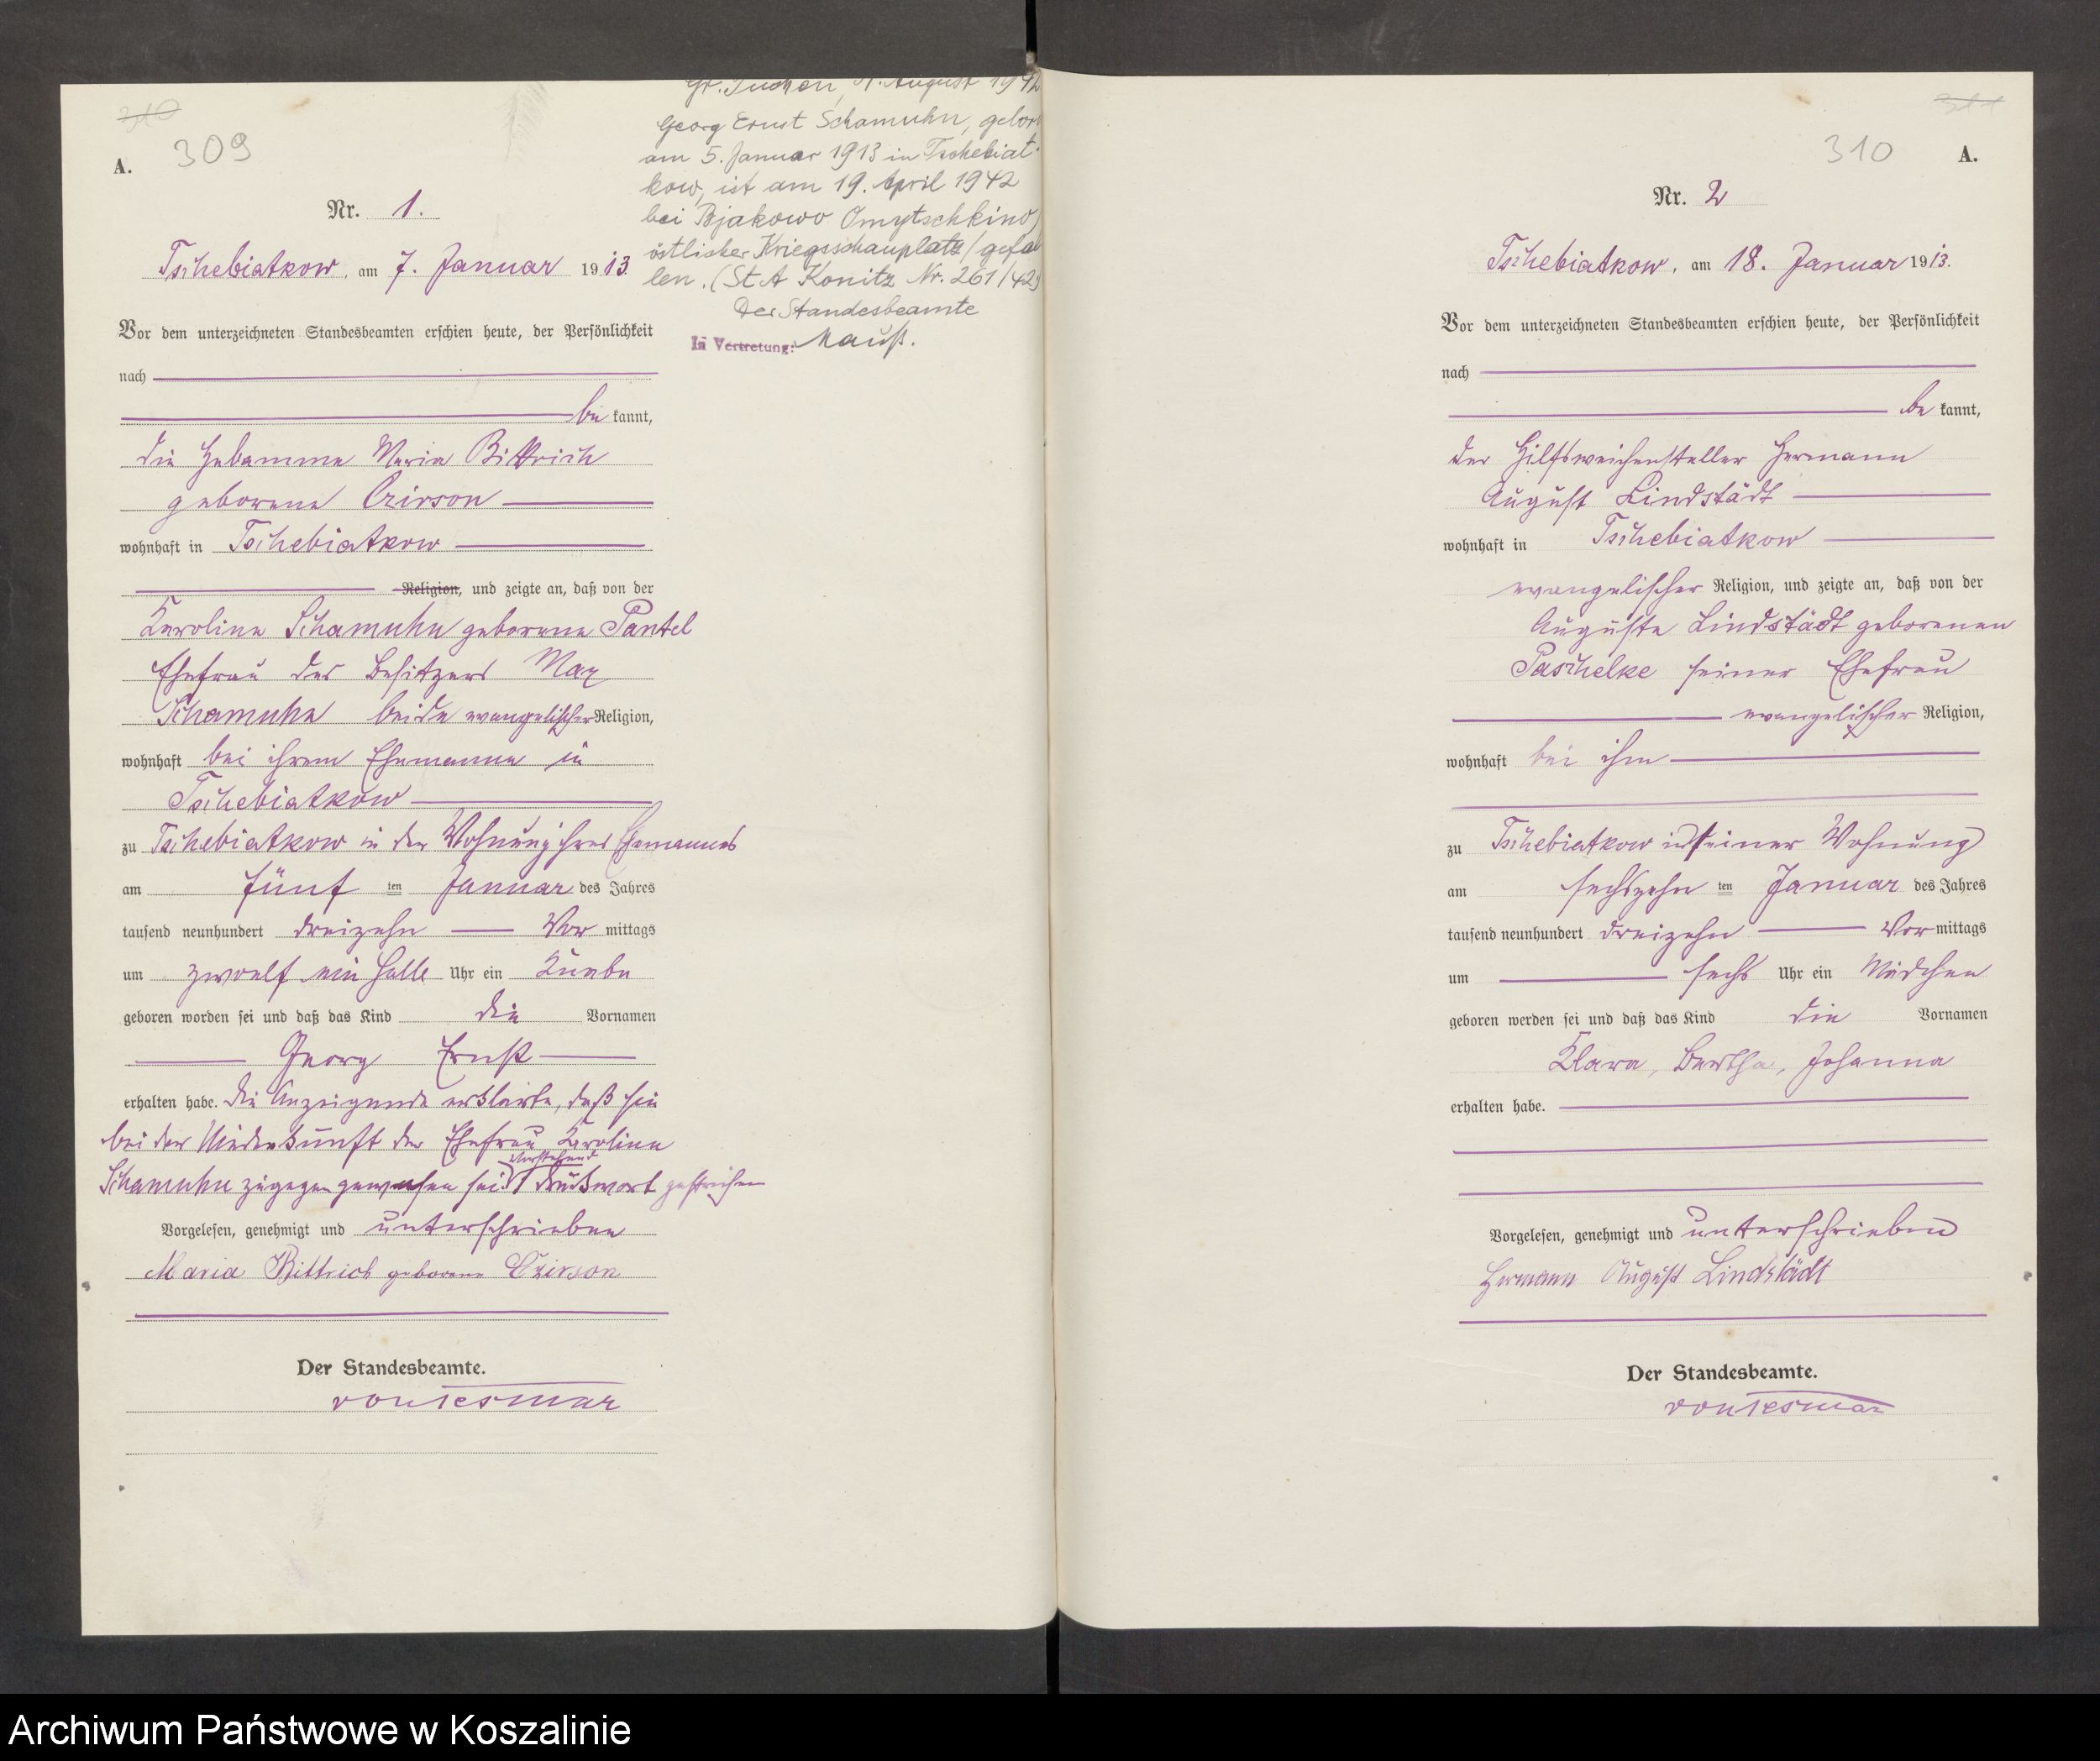 309
A.
Nr. 1.
Tschebiatkow, am 7. Januar 1913.
Vor dem unterzeichneten Standesbeamten erschien heute, der Persönlichkeit
nach
be kannt,
die Hebamme Maria Bittrich
geborene Czirson
wohnhaft in Tschebiatkow
Religion, und zeigte an, daß von der
Karoline Schamuhn geborene Pantel
Ehefrau des Besitzers Max
Schamuhn beide evangelischer Religion,
wohnhaft bei ihrem Ehemanne in
Tschebiatkow
zu Tschebiatkow in der Wohnung ihres Ehemannes
am fünf ten Januar des Jahres
tausend neunhundert dreizehn Vor mittags
um zwoelf ein halb Uhr ein Knabe
geboren worden sei und daß das Kind die Vornamen
Georg Ernst
erhalten habe. Die Anzeigende erklärte, daß sie
bei der Niederkunft der Ehefrau Karoline
Vorstehend
Schamuhn zugegen gewesen sei. Druckwort gestrichen
Vorgelesen, genehmigt und unterschrieben
Maria Bittrich geborene Czirson
Der Standesbeamte.
von Tesmar
Gr. Tuchen, August 1942
Georg Ernst Schamuhn, gebor
am 5. Januar 1913 in Tschebiat-
kow, ist am 19. April 1942
bei Bjakowo Omytschkino,
östlicher Kriegsschauplatz/gefal
len. (St A Konitz Nr. 261/42)
Der Standesbeamte
In Vertretung: Mauß.
310
A.
Nr. 2
Tschebiatkow, am 18. Januar 1913.
Vor dem unterzeichneten Standesbeamten erschien heute, der Persönlichkeit
nach
be kannt,
der Hilfsweichensteller Hermann
August Lindstädt
wohnhaft in Tschebiatkow
evangelischer Religion, und zeigte an, daß von der
Auguste Lindstädt geborenen
Paschelke seiner Ehefrau
evangelischer Religion,
wohnhaft bei ihm
zu Tschebiatkow in seiner Wohnung
am sechszehn ten Januar des Jahres
tausend neunhundert dreizehn Vor mittags
um sechs Uhr ein Mädchen
geboren werden sei und daß das Kind die Vornamen
Klara, Bertha, Johanna
erhalten habe.
Vorgelesen, genehmigt und unterschrieben
Hermann August Lindstädt
Der Standesbeamte.
von Tesmar
Archiwum Państwowe w Koszalinie